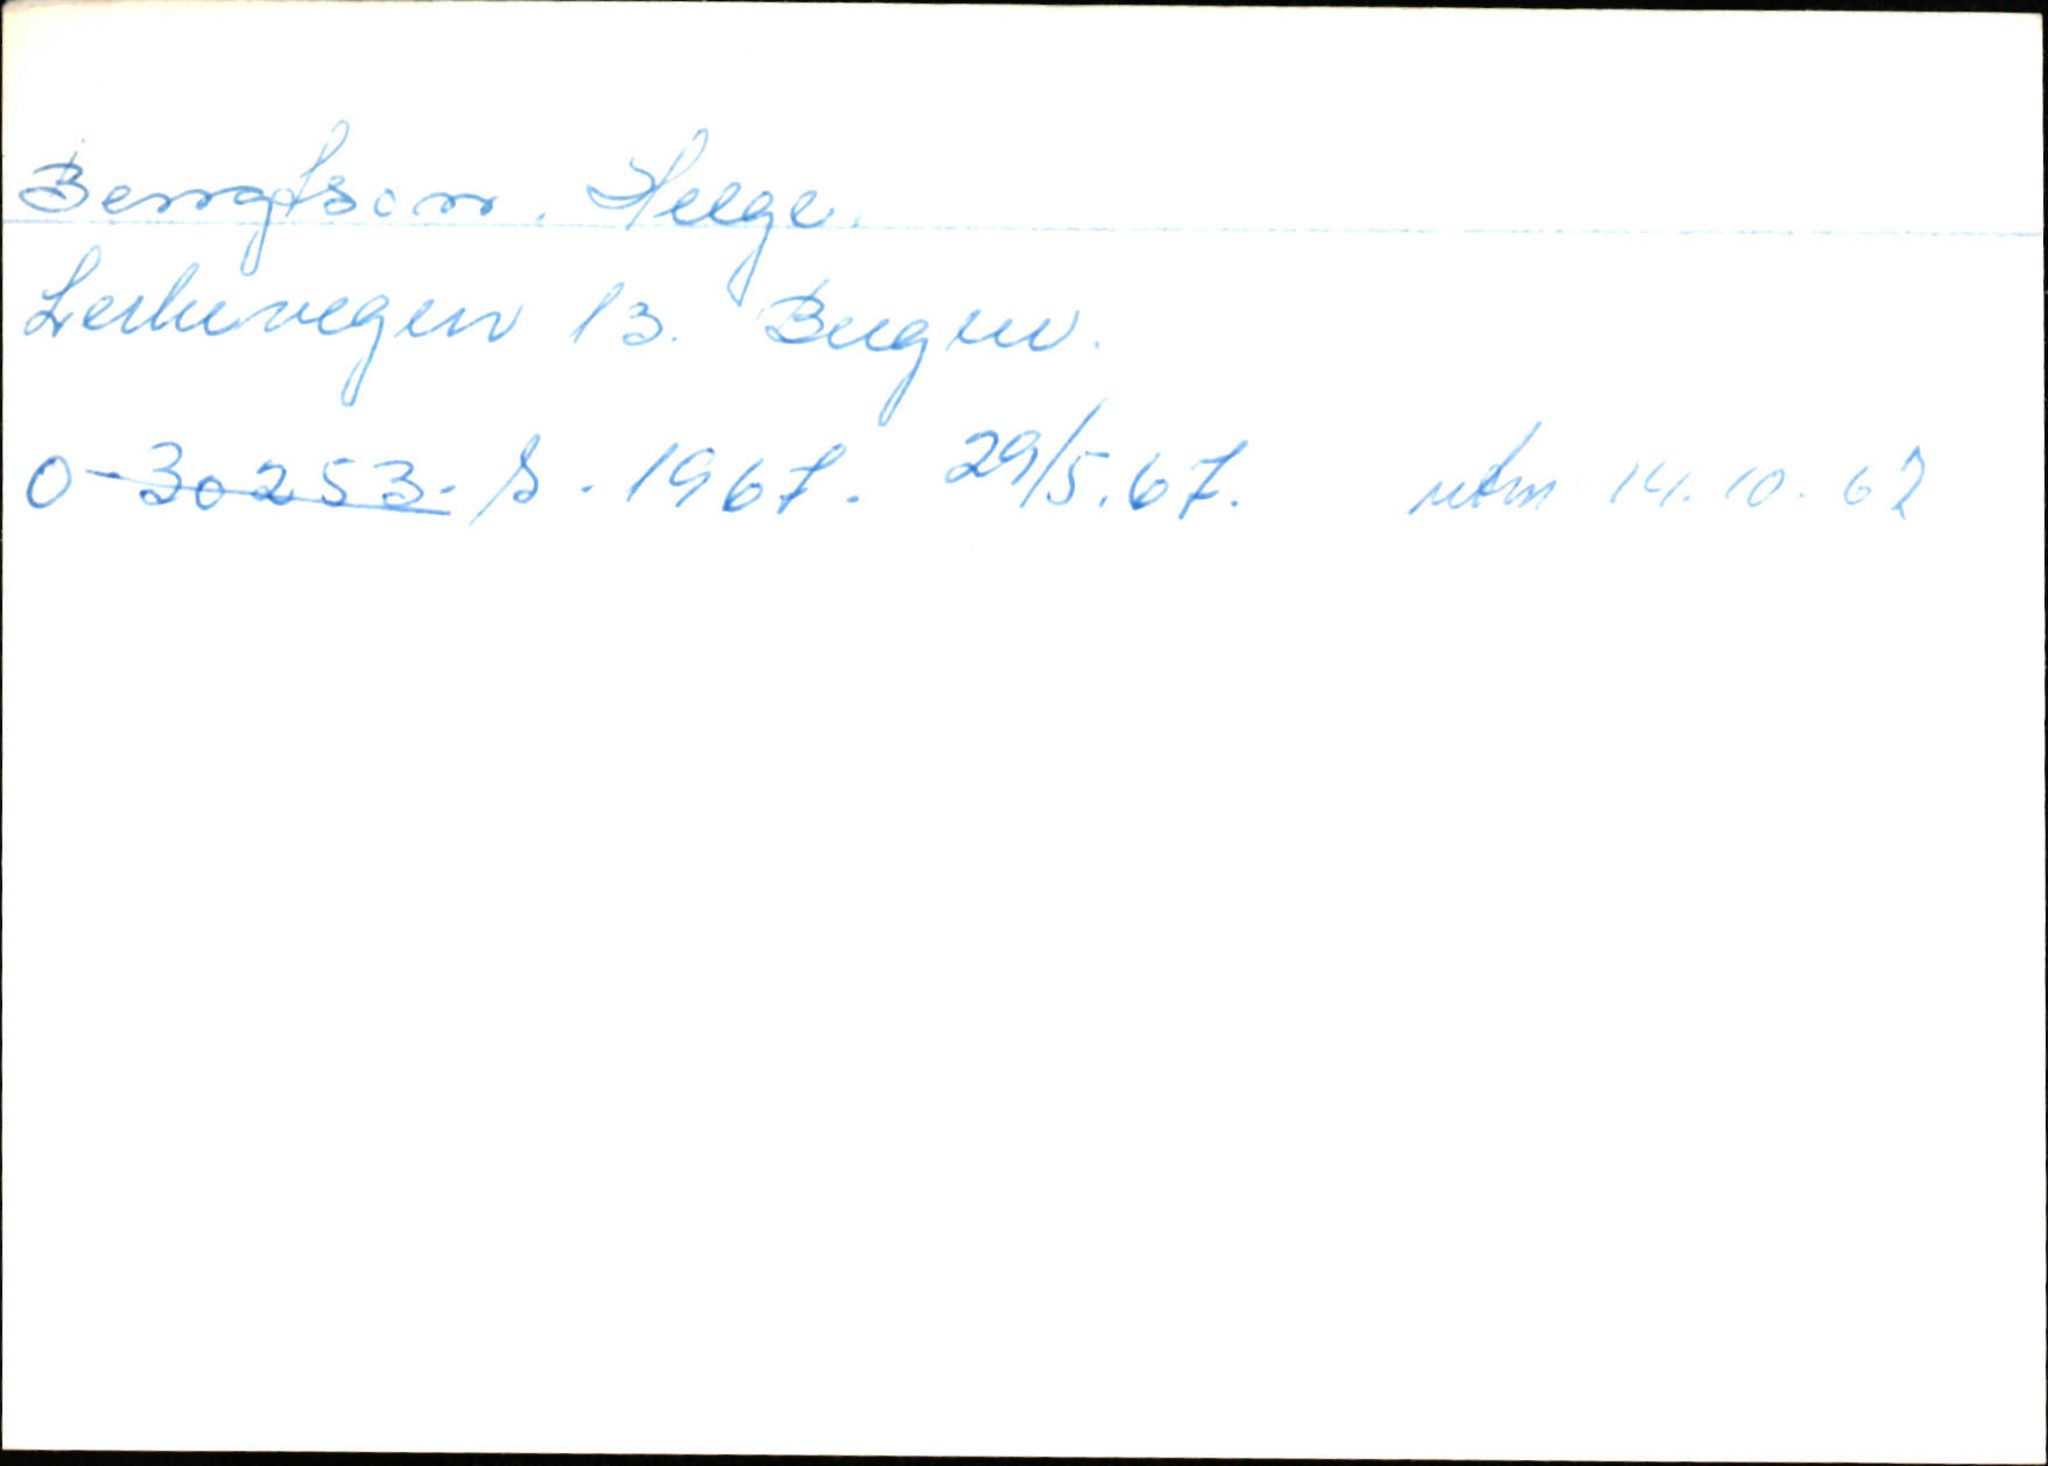 Bengtson. Helge.
Lerkevegen 13. Bergen.
O-30253. S. 1967. 29/5.67. utm 14.10.67